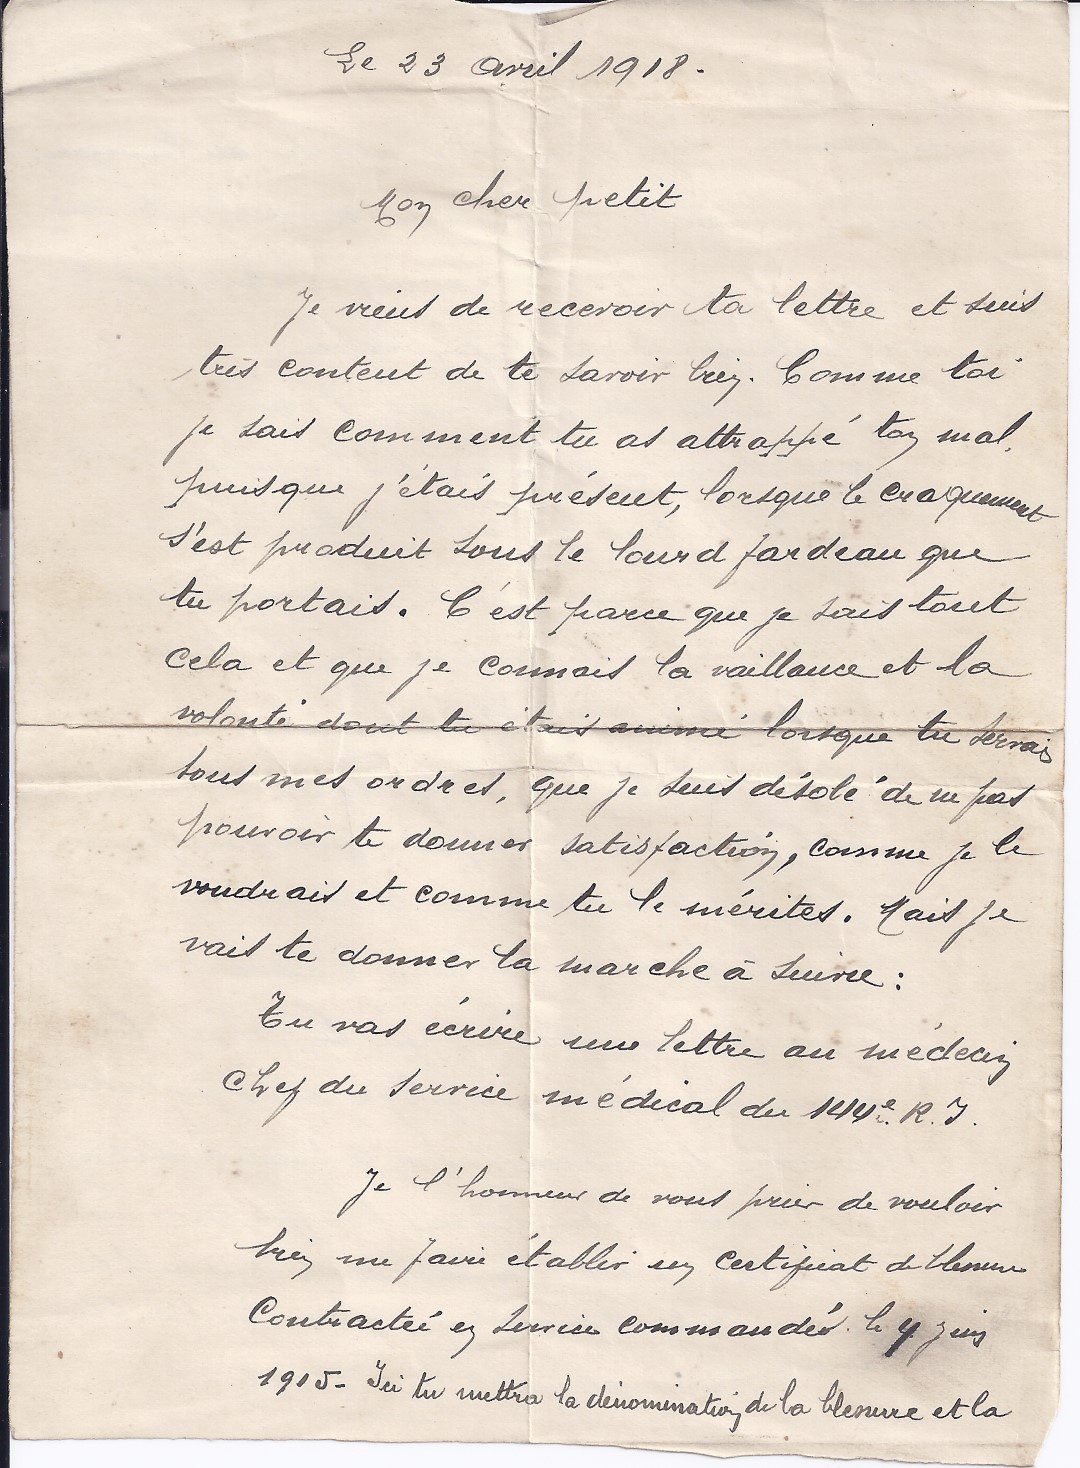 Le 23 avril 1918.
Mon cher petit
Je viens de recevoir ta lettre et suis
très content de te savoir bien. Comme toi
je sais comment tu as attrappé ton mal,
puisque j'étais présent, lorsque le craquement
s'est produit sous le lourd fardeau que
tu portais. C'est parce que je sais tout
cela et que je connais la vaillance et la
volonté dont tu étais animé lorsque tu servais
sous mes ordres, que je suis désolé de ne pas
pouvoir te donner satisfaction, comme je le
voudrais et comme tu le mérites. Mais je
vais te donner la marche à suivre :
Tu vas écrire une lettre au médecin
chef du service médical du 144e R.I.
Je l'honneur de vous prier de vouloir
bien me faire établir un certificat de blessure
Contractée en service commandés. le 4 juin
1915- Ici tu mettra la dénomination de la blessure et la